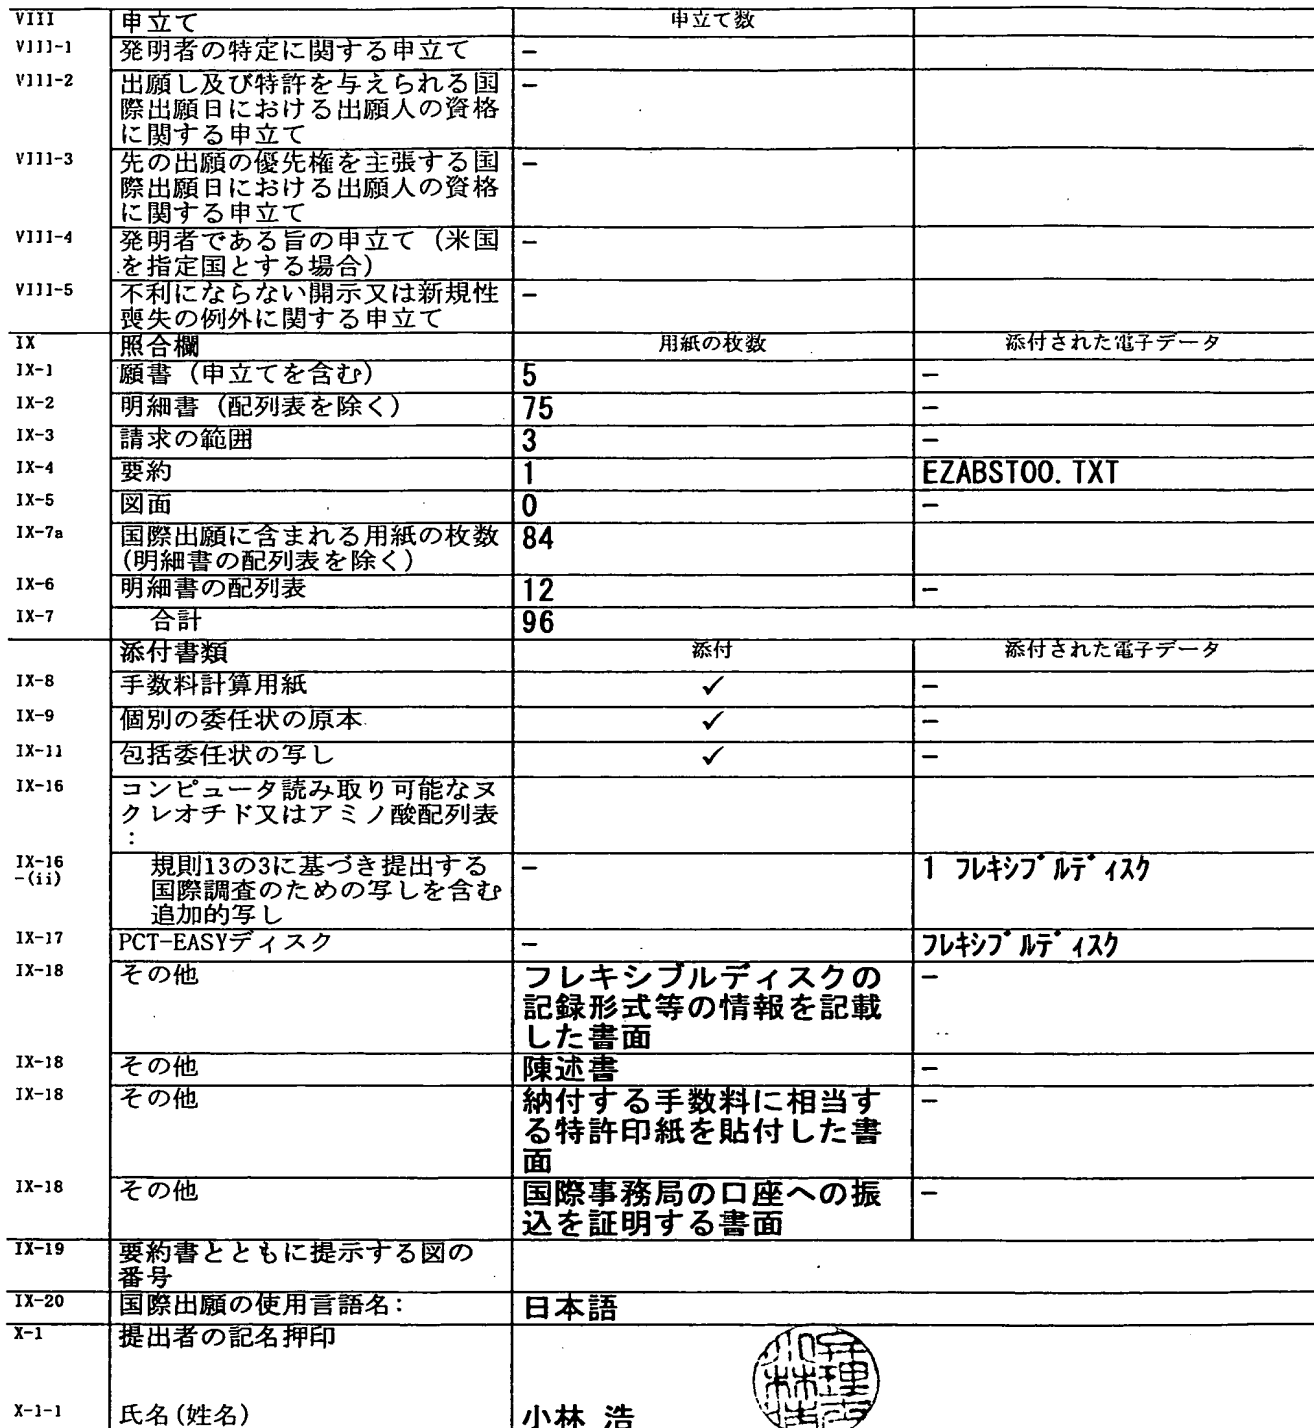 VIII 申立て 申立て数
VIII-1 発明者の特定に関する申立て -
VIII-2 出願し及び特許を与えられる国 -
際出願日における出願人の資格
に関する申立て
VIII-3 先の出願の優先権を主張する国 -
際出願日における出願人の資格
に関する申立て
VIII-4 発明者である旨の申立て（米国 -
を指定国とする場合）
VIII-5 不利にならない開示又は新規性 -
喪失の例外に関する申立て
IX 照合欄 用紙の枚数 添付された電子データ
IX-1 願書（申立てを含む） 5 -
IX-2 明細書（配列表を除く） 75 -
IX-3 請求の範囲 3 -
IX-4 要約 1 EZABST00.TXT
IX-5 図面 0 -
IX-7a 国際出願に含まれる用紙の枚数 84
(明細書の配列表を除く)
IX-6 明細書の配列表 12 -
IX-7 合計 96
添付書類 添付 添付された電子データ
IX-8 手数料計算用紙 ✓ -
IX-9 個別の委任状の原本 ✓ -
IX-11 包括委任状の写し ✓ -
IX-16 コンピュータ読み取り可能なヌ
クレオチド又はアミノ酸配列表
:
IX-16 規則13の3に基づき提出する - 1 フレキシブルディスク
-(ii) 国際調査のための写しを含む
追加的写し
IX-17 PCT-EASYディスク - フレキシブルディスク
IX-18 その他 フレキシブルディスクの -
記録形式等の情報を記載
した書面
IX-18 その他 陳述書 -
IX-18 その他 納付する手数料に相当す -
る特許印紙を貼付した書
面
IX-18 その他 国際事務局の口座への振 -
込を証明する書面
IX-19 要約書とともに提示する図の
番号
IX-20 国際出願の使用言語名: 日本語
X-1 提出者の記名押印
X-1-1 氏名(姓名) 小林 浩